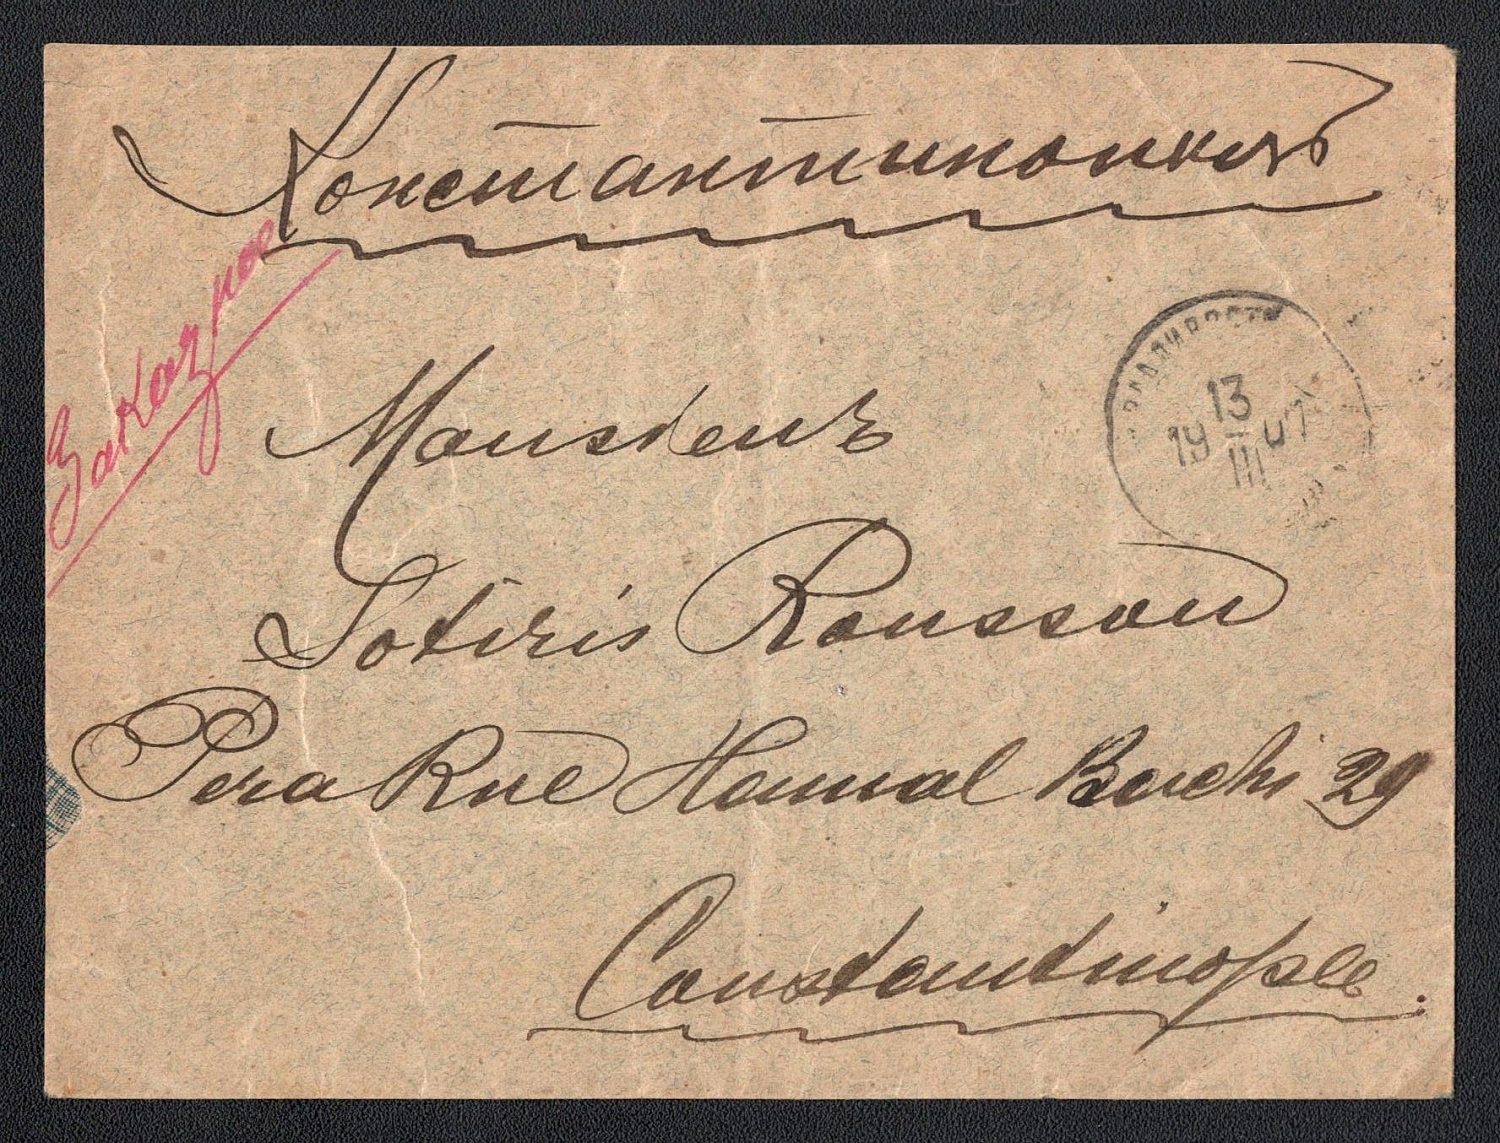 Константинополь
Заказное
ВЛАДИВОСТ
13
19 07
III
Monsieur
Sotiris Roussou
Pera Rue Hamal Bachi 29
Constantinople.